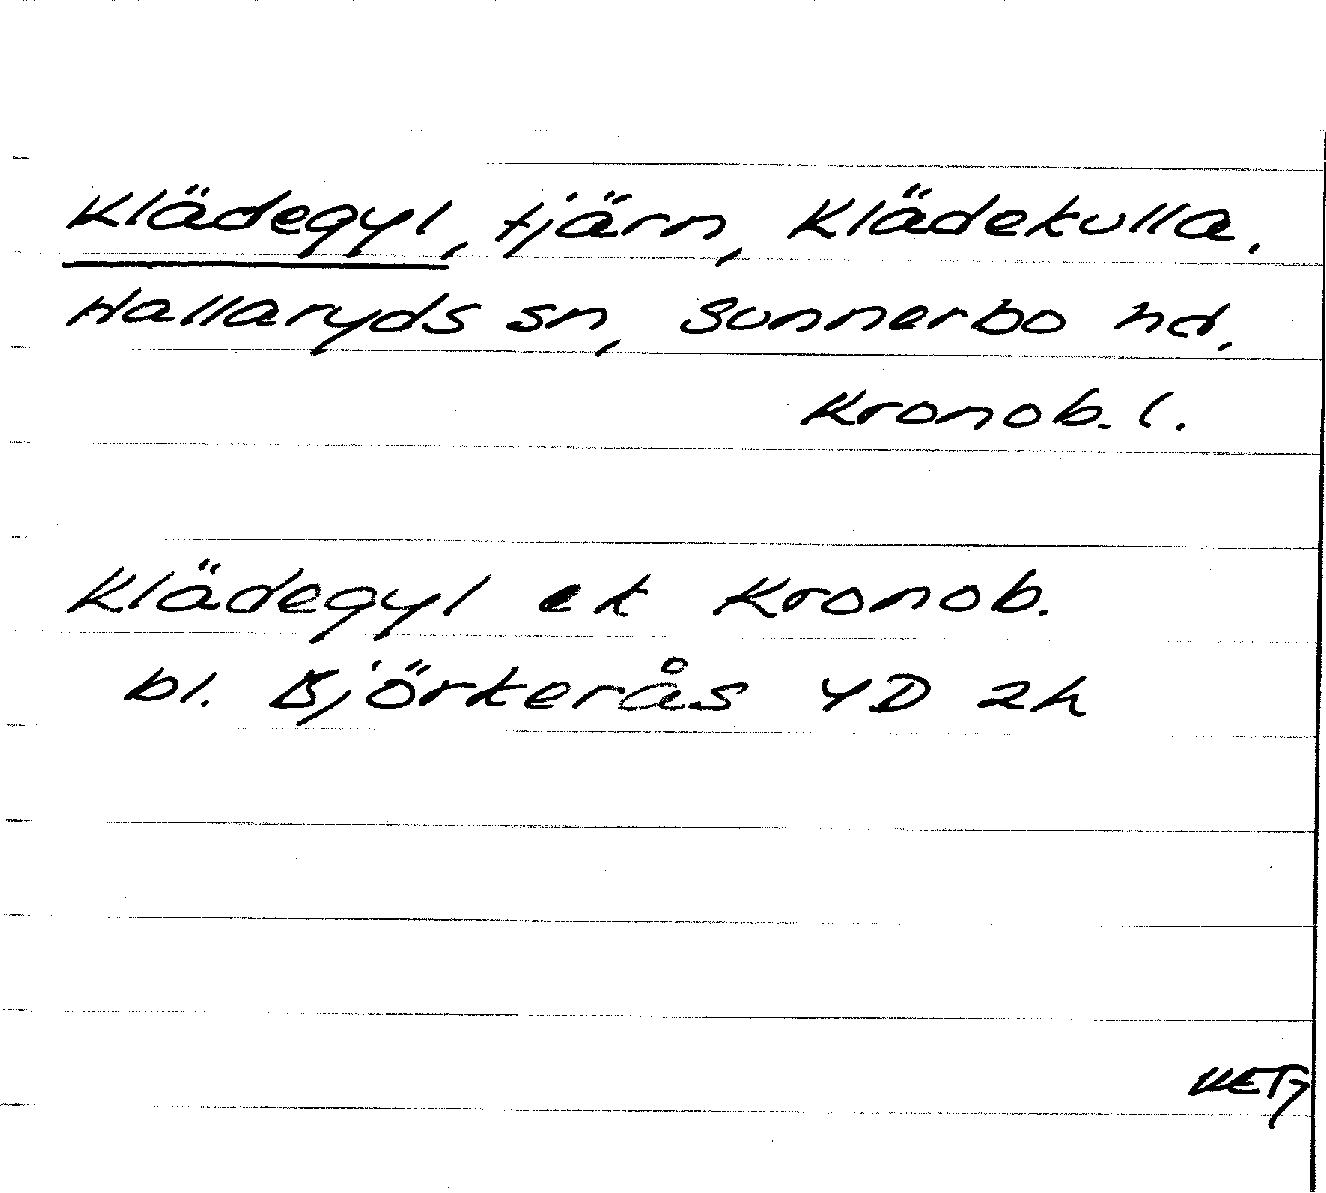 Klädegyl, tjärn, Klädekulla,
Hallaryds sn, Sunnerbo hd,
Kronob. l.
Klädegyl ek Kronob.
bl. Björkerås 4D 2h